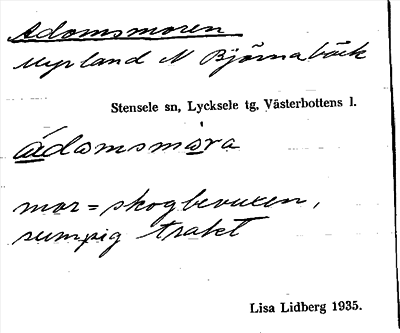 Adomsmoren
Myrland N Björnabäck
Stensele sn, Lycksele tg, Västerbottens l.
ádomsmo̱ra
mor = skogbevuxen,
sumpig trakt
Lisa Lidberg 1935.